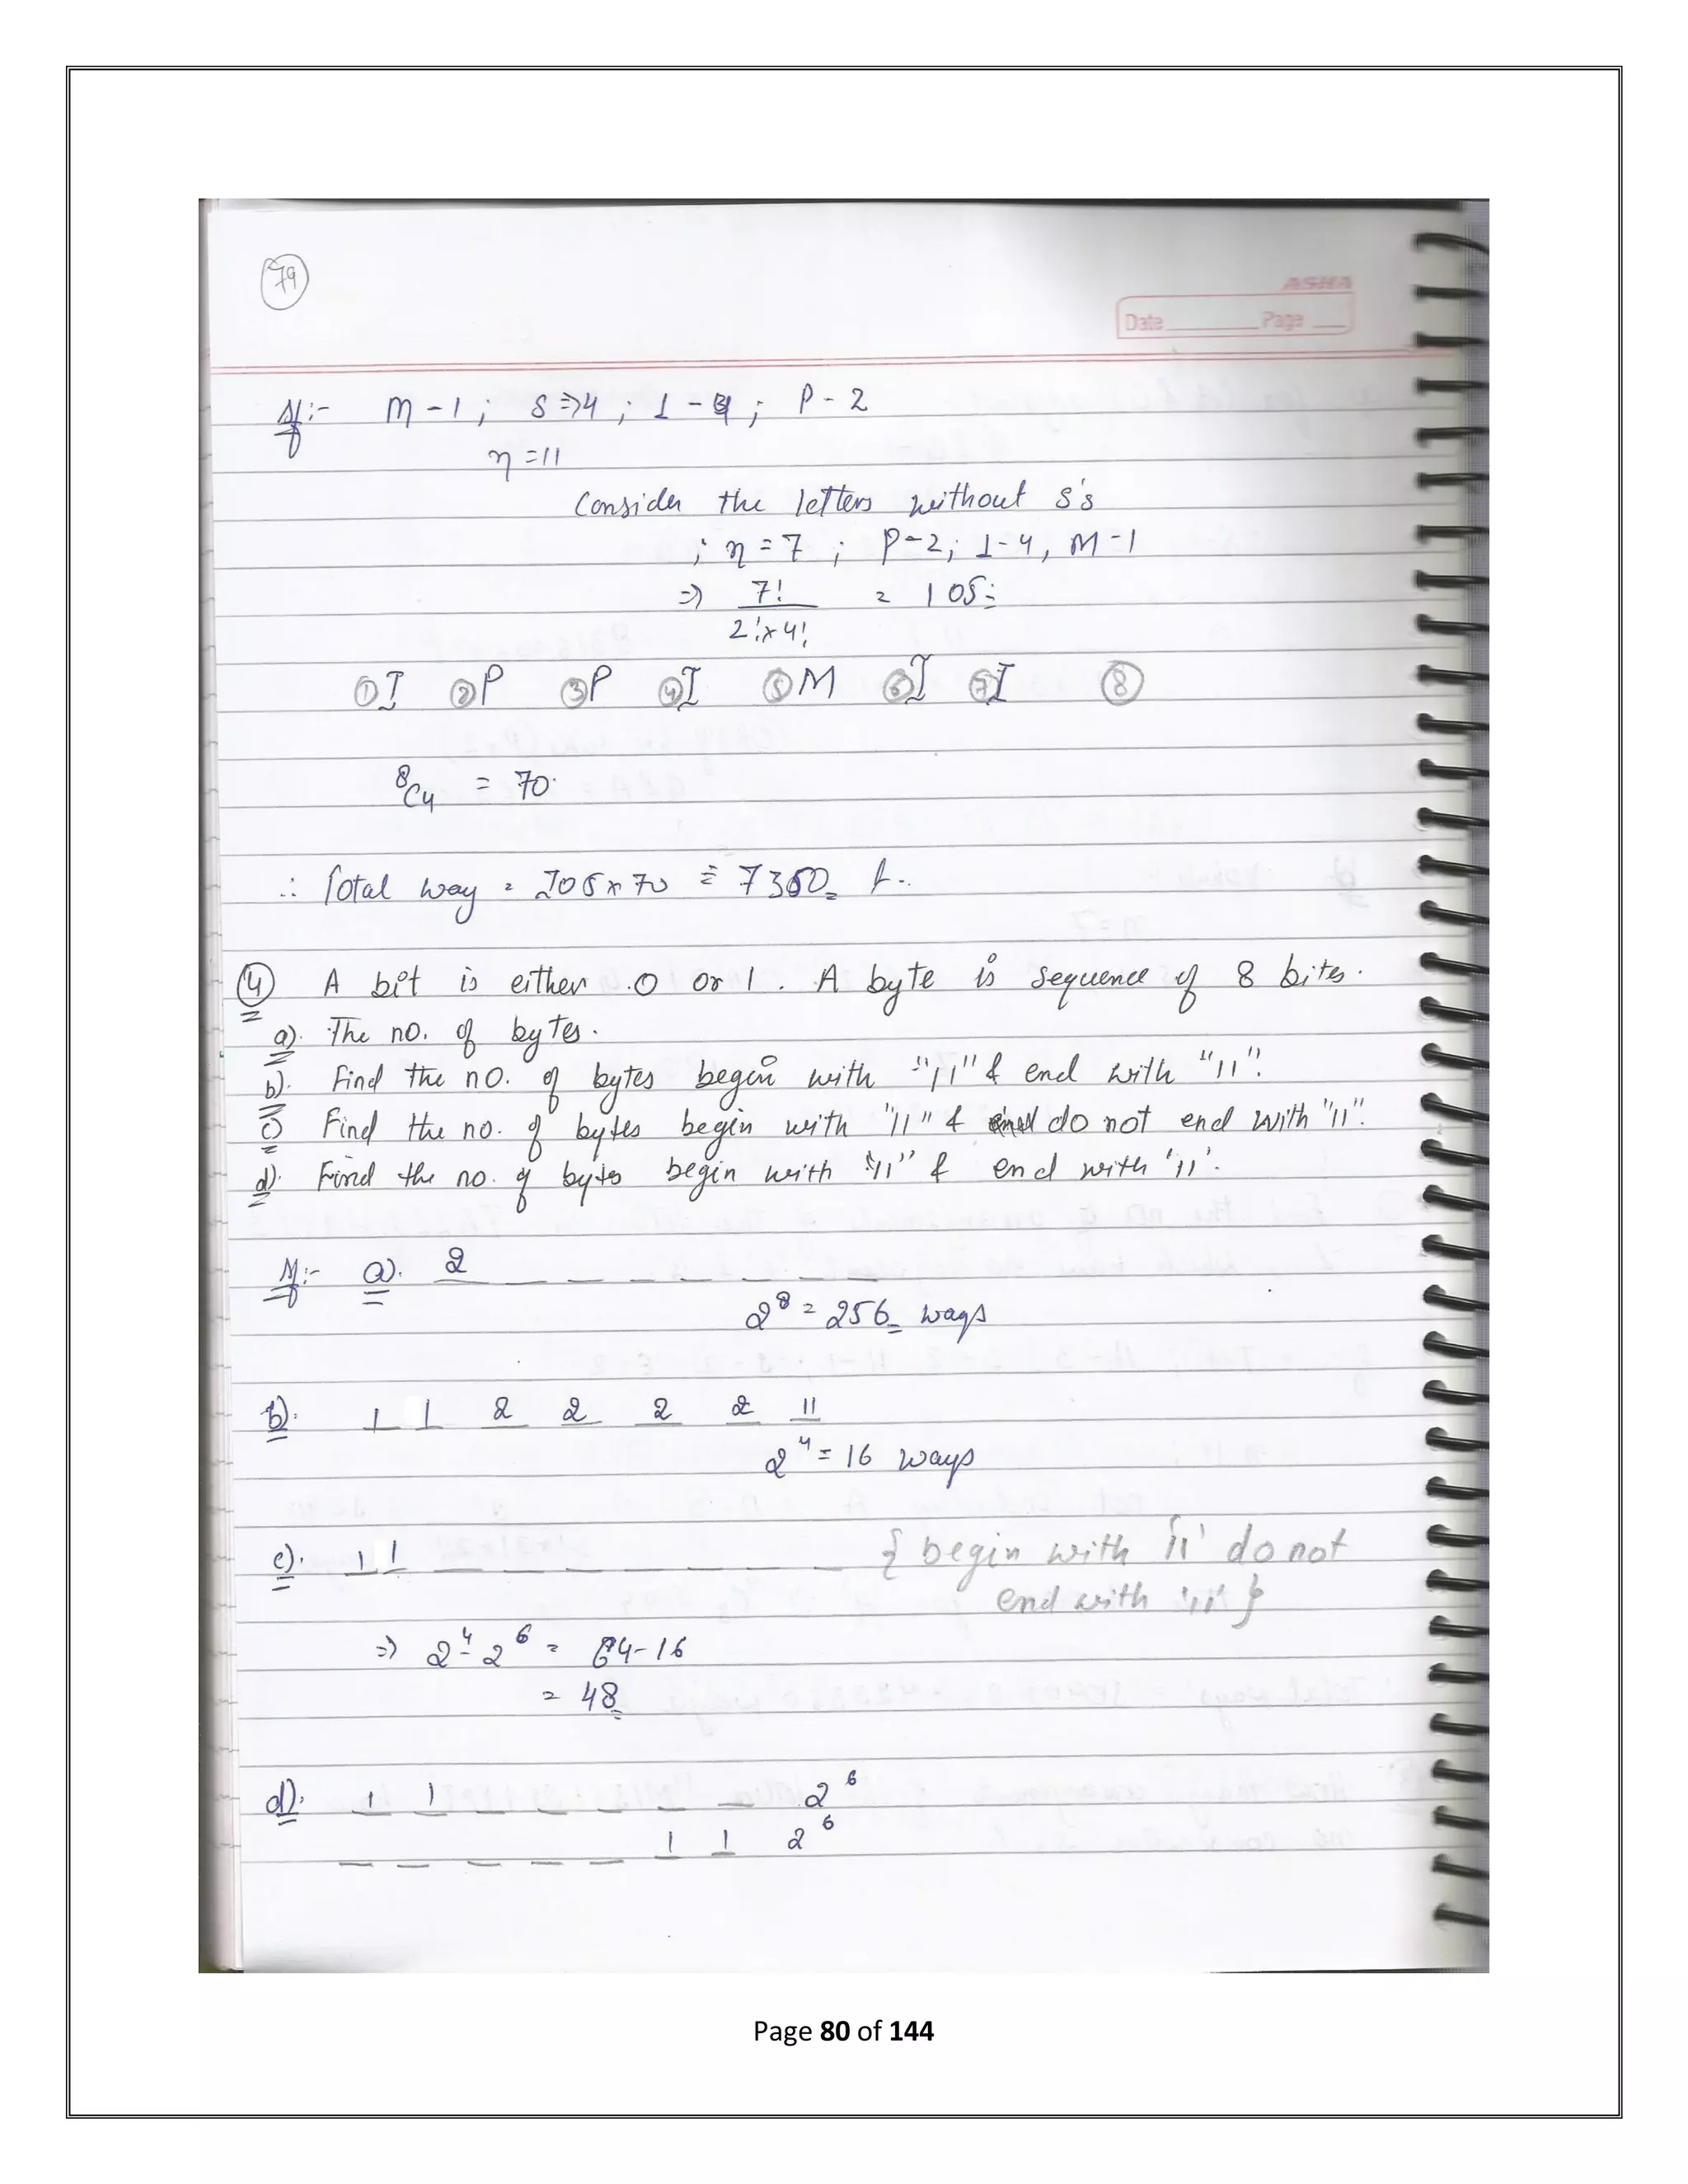 79
ASHA
Date Page
M - 1 ; S ⇒ 4 ; I - 4 ; P - 2
η = 11
Consider the letters without S's
; η = 7 ; P - 2 ; I - 4 , M - 1
⇒ 7! / 2! × 4! = 105
① I ② P ③ P ④ I ⑤ M ⑥ I ⑦ I ⑧
⁸C₄ = 70.
∴ Total way = 105 × 70 = 7350
④ A bit is either 0 or 1. A byte is sequence of 8 bites.
a). The no. of bytes.
b). Find the no. of bytes begin with "11" & end with "11".
c) Find the no. of bytes begin with "11" & do not end with "11".
d). Find the no. of bytes begin with "11" & end with '11'.
a). 2 _ _ _ _ _ _ _
2⁸ = 256 ways
b). 1 1 2 2 2 2 11
2⁴ = 16 ways
c). 1 1 _ _ _ _ _ _ { begin with '11' do not
end with '11' }
⇒ 2⁴ - 2⁶ = 64 - 16
= 48
d). 1 1 _ _ _ _ _ _ 2⁶
_ _ _ _ _ 1 1 2⁶
Page 80 of 144